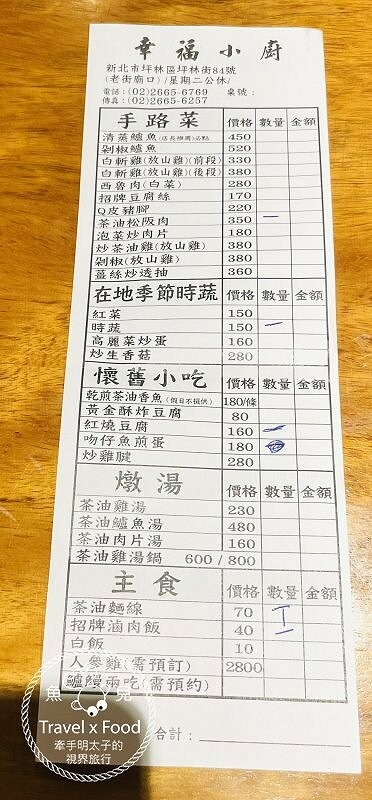 幸福小廚
新北市坪林區坪林街84號
(老街廟口)/星期二公休/
電話:(02)2665-6769 桌號:
傳真:(02)2665-6257
手路菜 價格 數量 金額
清蒸鱸魚(店長推薦)必點 450
剁椒鱸魚 520
白斬雞(放山雞)(前段) 330
白斬雞(放山雞)(後段) 380
西魯肉(白菜) 280
招牌豆腐絲 170
Q皮豬腳 220
茶油松阪肉 350 一
泡菜炒肉片 180
炒茶油雞(放山雞) 380
剁椒(放山雞) 380
薑絲炒透抽 360
在地季節時蔬 價格 數量 金額
紅菜 150
時蔬 150 一
高麗菜炒蛋 160
炒生香菇 280
懷舊小吃 價格 數量 金額
乾煎茶油香魚(假日不提供) 180/條
黃金酥炸豆腐 80
紅燒豆腐 160 一
吻仔魚煎蛋 180
炒雞腱 280
燉湯 價格 數量 金額
茶油雞湯 230
茶油鱸魚湯 480
茶油肉片湯 160
茶油雞湯鍋 600/800
主食 價格 數量 金額
茶油麵線 70 T
招牌滷肉飯 40 一
白飯 10
人參雞(需預訂) 2800
鱸鰻兩吃(需預約)
合計:
Travel x Food
牽手明太子的
視界旅行